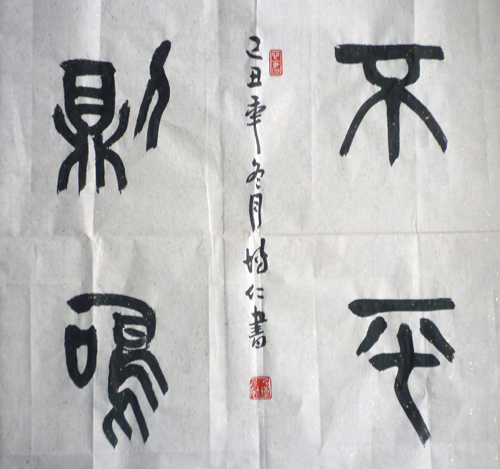 不平
則鳴
己丑年冬月仁書